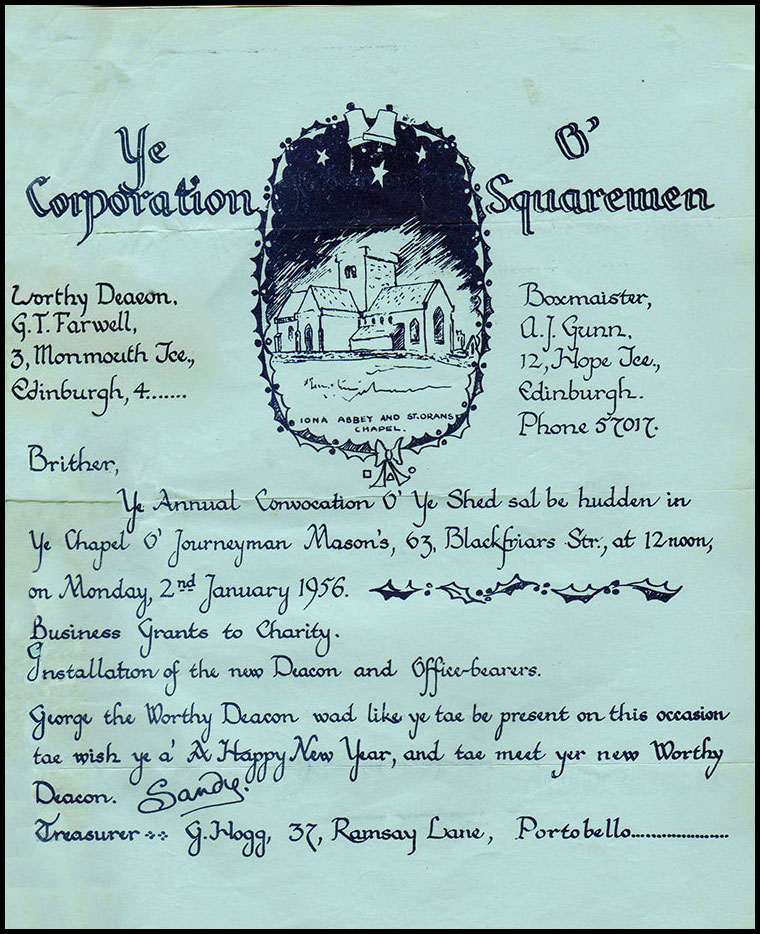 Ye
Corporation
O'
Squaremen
Worthy Deacon,
G.T. Farwell,
3, Monmouth Tce.,
Edinburgh, 4.......
IONA ABBEY AND ST. ORANS
CHAPEL.
Boxmaister,
A.J. Gunn,
12, Hope Tce.,
Edinburgh.
Phone 57017.
Brither,
Ye Annual Convocation O' Ye Shed sal be hudden in
Ye Chapel O' Journeyman Mason's, 63, Blackfriars Str., at 12 noon,
on Monday, 2nd January 1956.
Business Grants to Charity.
Installation of the new Deacon and Office-bearers.
George the Worthy Deacon wad like ye tae be present on this occasion
tae wish ye a' A Happy New Year, and tae meet yer new Worthy
Deacon. Sandy.
Treasurer G. Hogg, 37, Ramsay Lane, Portobello....................